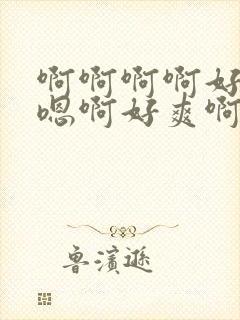 啊啊啊啊好
嗯啊好爽啊
鲁滨逊